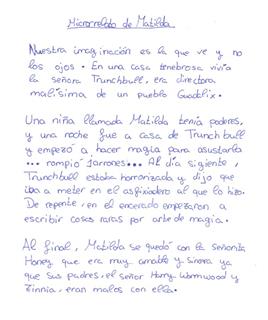 Microrrelato de Matilda
Nuestra imaginación es la que ve y no
los ojos. En una casa tenebrosa vivía
la señora Trunchbull, era directora
malísima de un pueblo Guadlix.
Una niña llamada Matilda tenía poderes,
y una noche fue a casa de Trunchbull
y empezó a hacer magia para asustarla
... rompió jarrones... Al día sigiente,
Trunchbull estaba horrorizada y dijo que
iba a meter en el asfixiadero al que lo hizo.
De repente, en el encerado empezaron a
escribir cosas raras por arte de magia.
Al final, Matilda se quedó con la señorita
Honey que era muy amable y sincera ya
que sus padres, el señor Harry Wormwood y
Zinnia, eran malos con ella.